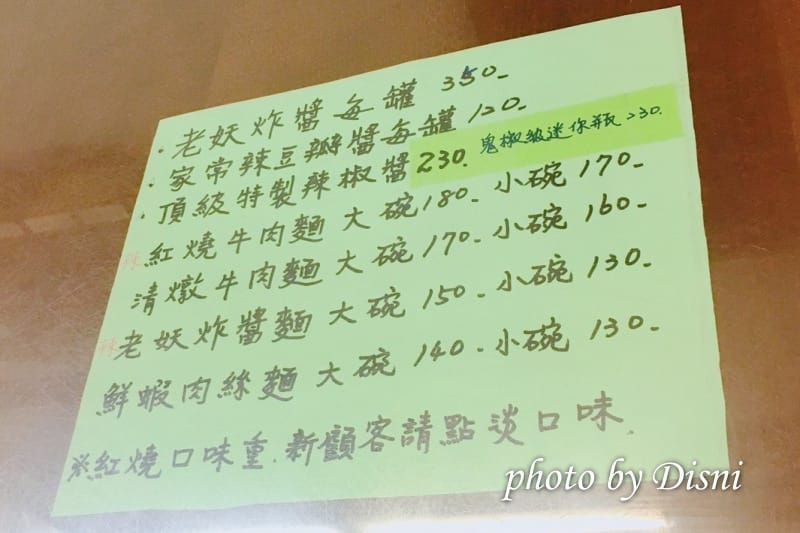 ·老妖炸醬每罐 350-
·家常辣豆瓣醬每罐 120-
·頂級特製辣椒醬 230. 鬼椒級迷你瓶 230.
辣紅燒牛肉麵 大碗 180- 小碗 170-
清燉牛肉麵 大碗 170- 小碗 160-
辣老妖炸醬麵 大碗 150- 小碗 130-
鮮蝦肉絲麵 大碗 140- 小碗 130-
※紅燒口味重.新顧客請點淡口味.
photo by Disni